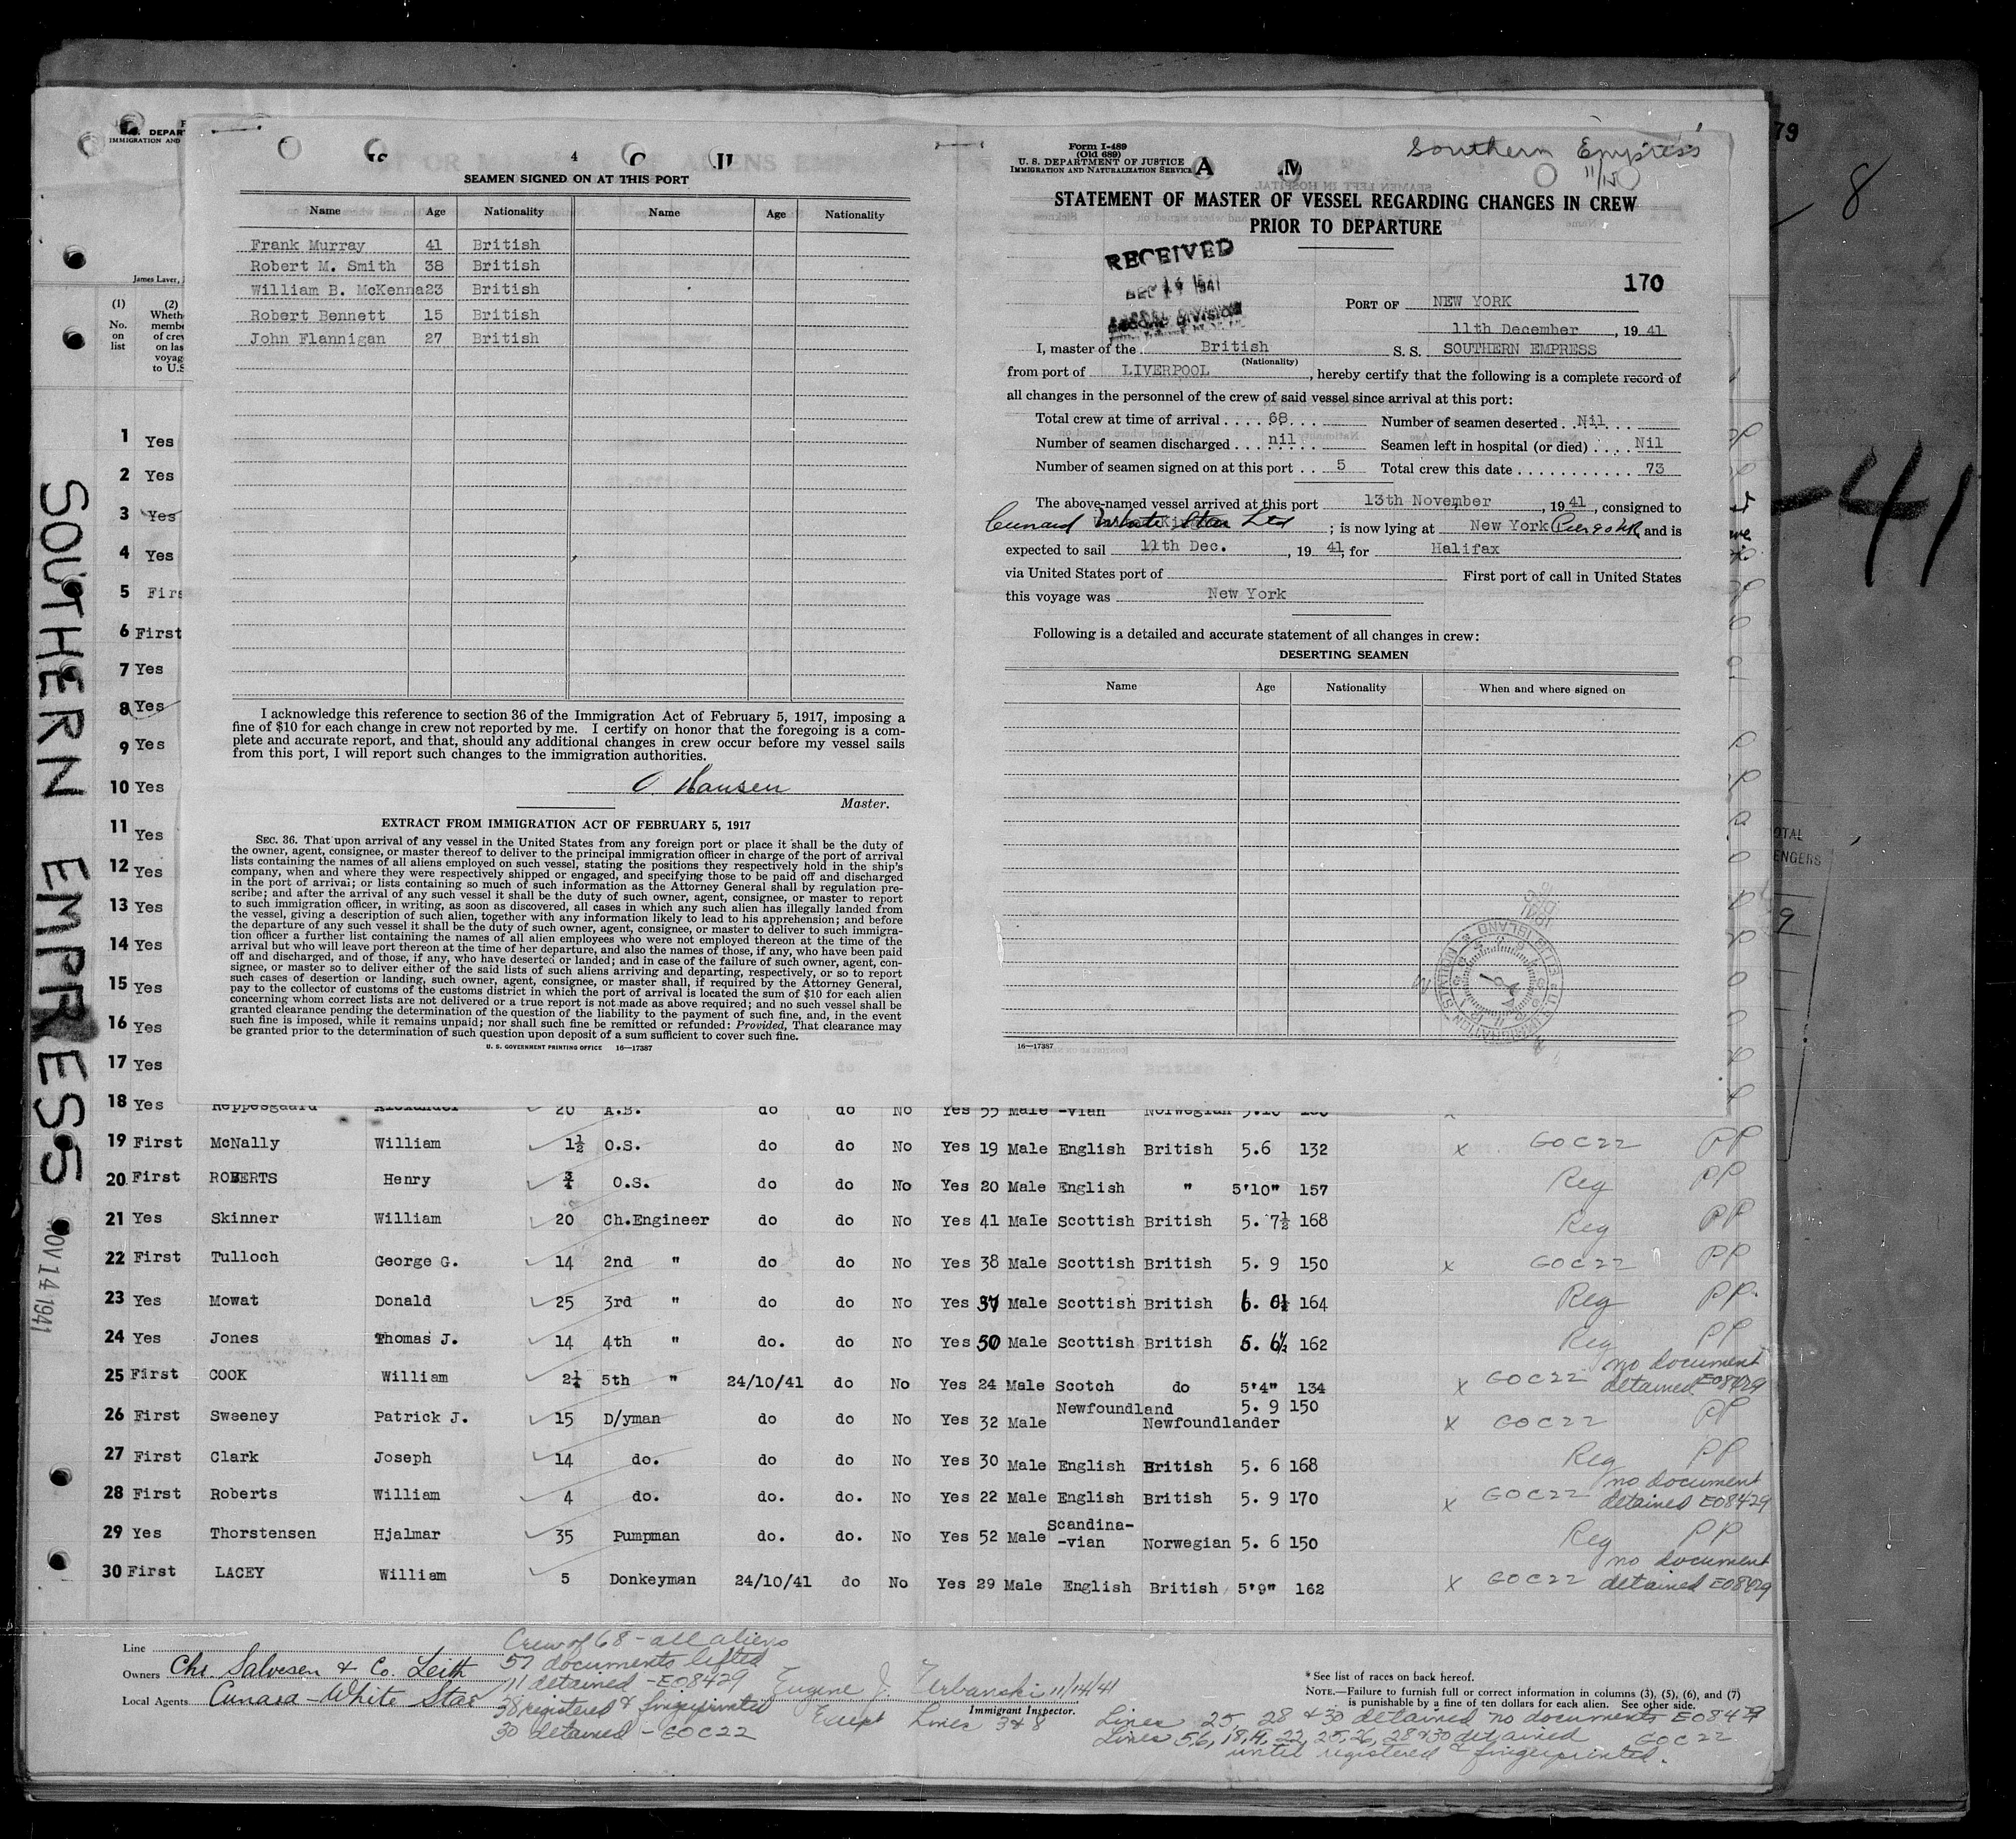 SEAMEN SIGNED ON AT THIS PORT
Name Age Nationality Name Age Nationality
Frank Murray 41 British
Robert M. Smith 38 British
William B. McKenna 23 British
Robert Bennett 15 British
John Flannigan 27 British
I acknowledge this reference to section 36 of the Immigration Act of February 5, 1917, imposing a
fine of $10 for each change in crew not reported by me. I certify on honor that the foregoing is a com-
plete and accurate report, and that, should any additional changes in crew occur before my vessel sails
from this port, I will report such changes to the immigration authorities.
O. Hansen
Master.
EXTRACT FROM IMMIGRATION ACT OF FEBRUARY 5, 1917
SEC. 36. That upon arrival of any vessel in the United States from any foreign port or place it shall be the duty of
the owner, agent, consignee, or master thereof to deliver to the principal immigration officer in charge of the port of arrival
lists containing the names of all aliens employed on such vessel, stating the positions they respectively hold in the ship's
company, when and where they were respectively shipped or engaged, and specifying those to be paid off and discharged
in the port of arrival; or lists containing so much of such information as the Attorney General shall by regulation pre-
scribe; and after the arrival of any such vessel it shall be the duty of such owner, agent, consignee, or master to report
to such immigration officer, in writing, as soon as discovered, all cases in which any such alien has illegally landed from
the vessel, giving a description of such alien, together with any information likely to lead to his apprehension; and before
the departure of any such vessel it shall be the duty of such owner, agent, consignee, or master to deliver to such immigra-
tion officer a further list containing the names of all alien employees who were not employed thereon at the time of the
arrival but who will leave port thereon at the time of her departure, and also the names of those, if any, who have been paid
off and discharged, and of those, if any, who have deserted or landed; and in case of the failure of such owner, agent, con-
signee, or master so to deliver either of the said lists of such aliens arriving and departing, respectively, or so to report
such cases of desertion or landing, such owner, agent, consignee, or master shall, if required by the Attorney General,
pay to the collector of customs of the customs district in which the port of arrival is located the sum of $10 for each alien
concerning whom correct lists are not delivered or a true report is not made as above required; and no such vessel shall be
granted clearance pending the determination of the question of the liability to the payment of such fine, and, in the event
such fine is imposed, while it remains unpaid; nor shall such fine be remitted or refunded: Provided, That clearance may
be granted prior to the determination of such question upon deposit of a sum sufficient to cover such fine.
U. S. GOVERNMENT PRINTING OFFICE 16—17387
Form I-489
(Old 689)
U. S. DEPARTMENT OF JUSTICE
IMMIGRATION AND NATURALIZATION SERVICE
Southern Empress
11/15
STATEMENT OF MASTER OF VESSEL REGARDING CHANGES IN CREW
PRIOR TO DEPARTURE
RECEIVED
170
PORT OF NEW YORK
11th December, 1941
I, master of the British S. S. SOUTHERN EMPRESS
(Nationality)
from port of LIVERPOOL, hereby certify that the following is a complete record of
all changes in the personnel of the crew of said vessel since arrival at this port:
Total crew at time of arrival . . . . 68 Number of seamen deserted . . Nil
Number of seamen discharged . . . nil Seamen left in hospital (or died) . . . . Nil
Number of seamen signed on at this port . . 5 Total crew this date . . . . . . . . . . . . 73
The above-named vessel arrived at this port 13th November, 1941, consigned to
Cunard White Star Ltd; is now lying at New York Pier 90 NR and is
expected to sail 11th Dec., 1941, for Halifax
via United States port of First port of call in United States
this voyage was New York
Following is a detailed and accurate statement of all changes in crew:
DESERTING SEAMEN
Name Age Nationality When and where signed on
16—17387
79
8
-41
SOUTHERN EMPRESS
NOV 14 1941
James Laver,
(1) No. on list
1 Yes
2 Yes
3 Yes
4 Yes
5 Firs
6 First
7 Yes
8 Yes
9 Yes
10 Yes
11 Yes
12 Yes
13 Yes
14 Yes
15 Yes
16 Yes
17 Yes
18 Yes Reppesgaard Alexander 20 A.B. do do No Yes 55 Male -vian Norwegian
19 First McNally William 1½ O.S. do do No Yes 19 Male English British 5.6 132 x GOC22 PP
20 First ROBERTS Henry ¾ O.S. do do No Yes 20 Male English " 5'10" 157 Reg PP
21 Yes Skinner William 20 Ch.Engineer do do No Yes 41 Male Scottish British 5. 7½ 168 Reg PP
22 First Tulloch George G. 14 2nd " do do No Yes 38 Male Scottish British 5. 9 150 x GOC22 PP
23 Yes Mowat Donald 25 3rd " do do No Yes 37 Male Scottish British 6. 0½ 164 Reg PP.
24 Yes Jones Thomas J. 14 4th " do. do No Yes 50 Male Scottish British 5. 6½ 162 Reg PP
25 First COOK William 2¼ 5th " 24/10/41 do No Yes 24 Male Scotch do 5'4" 134 x GOC22 no document detained E08429
26 First Sweeney Patrick J. 15 D/yman do do No Yes 32 Male Newfoundland Newfoundlander 5. 9 150 x GOC22 PP
27 First Clark Joseph 14 do. do do No Yes 30 Male English British 5. 6 168 Reg PP
28 First Roberts William 4 do. do. do. No Yes 22 Male English British 5. 9 170 x GOC22 no document detained E08429
29 Yes Thorstensen Hjalmar 35 Pumpman do. do. No Yes 52 Male Scandina--vian Norwegian 5. 6 150 Reg PP
30 First LACEY William 5 Donkeyman 24/10/41 do No Yes 29 Male English British 5'9" 162 x GOC22 no document detained E08429
Line
Owners Chr. Salvesen & Co. Leith
Local Agents Cunard-White Star
Crew of 68 - all aliens
57 documents lifted
11 detained - E08429
38 registered & fingerprinted
30 detained - GOC22
Eugene J. Urbanski 11/14/41
Immigrant Inspector.
Except Lines 3 & 8
* See list of races on back hereof.
NOTE.—Failure to furnish full or correct information in columns (3), (5), (6), and (7)
is punishable by a fine of ten dollars for each alien. See other side.
Lines 25, 28 & 30 detained no documents E08429
Lines 5,6,18,19,22,25,26,28&30 detained GOC22
until registered & fingerprinted.